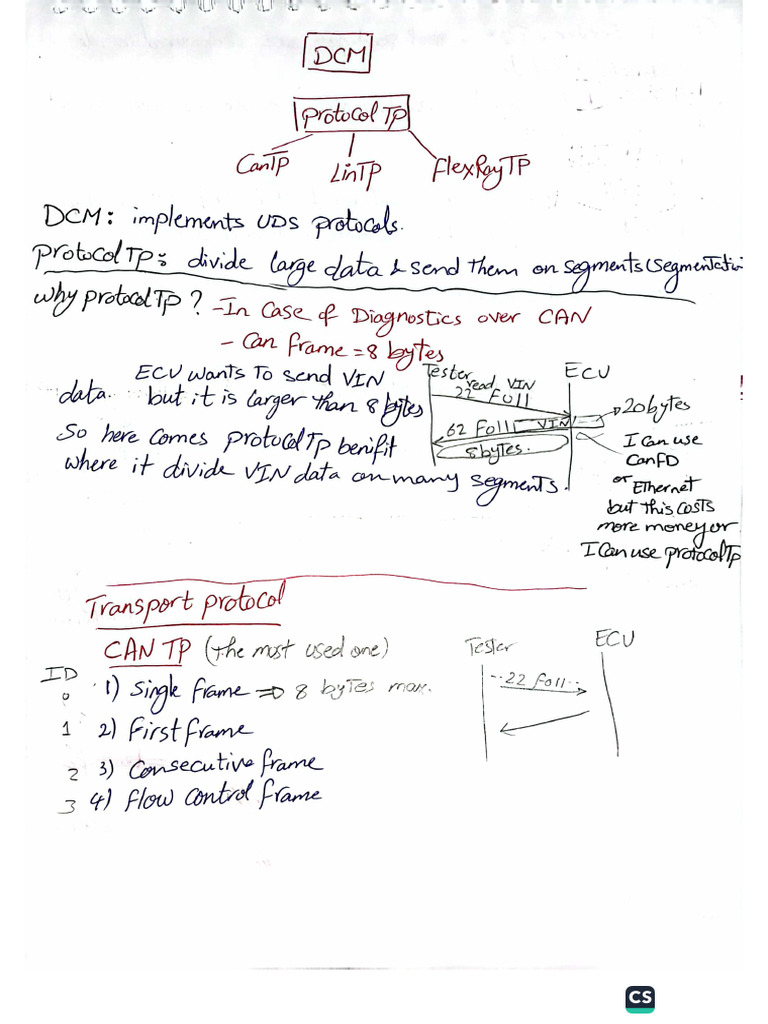 DCM
Protocol TP
CanTP LinTP FlexRayTP
DCM: implements UDS protocols.
Protocol TP: divide large data & send them on segments (segmentation
why protocol TP? - In Case of Diagnostics over CAN
- Can frame = 8 bytes
ECU wants to send VIN
data. but it is larger than 8 bytes
So here comes protocol TP benifit
where it divide VIN data on many segments.
Tester ECU
read VIN
22 F011
62 F011 VIN 20bytes
8 bytes.
I Can use
CanFD
or Ethernet
but this costs
more money or
I Can use protocolTp
!
Transport protocol
CAN TP (the most used one)
ID
0 1) Single frame => 8 bytes max.
1 2) First frame
2 3) Consecutive frame
3 4) flow control frame
Tester ECU
..22 F011..
CS